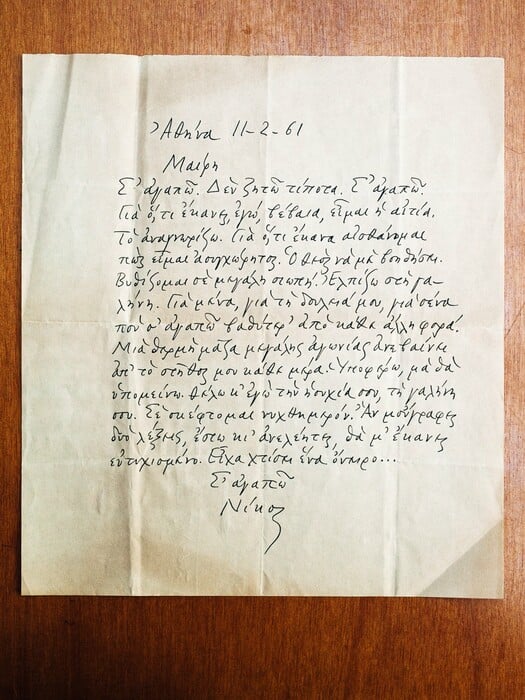 Ἀθήνα 11-2-61
Μαίρη
Σ' ἀγαπῶ. Δὲν ζητῶ τίποτα. Σ' ἀγαπῶ.
Γιὰ ὅ,τι ἔκανες ἐγώ, βέβαια, εἶμαι ἡ αἰτία.
Τὸ ἀναγνωρίζω. Γιὰ ὅ,τι ἔκανα αἰσθάνομαι
πὼς εἶμαι ἀσυγχώρητος. Ὁ θεὸς νὰ μὲ βοηθήσει.
Βυθίζομαι σὲ μεγάλη σιωπή. Ἐλπίζω στὴ γα-
λήνη. Γιὰ μένα, γιὰ τὴ δουλειά μου, γιὰ σένα
ποὺ σ' ἀγαπῶ βαθύτερ' ἀπὸ κάθε ἄλλη φορά.
Μιὰ θερμὴ μᾶζα μεγάλης ἀγωνίας ἀνεβαίνει
ἀπ' τὸ στῆθος μου κάθε μέρα. Ὑποφέρω, μὰ θὰ
ὑπομείνω. Θέλω κ' ἐγὼ τὴν ἡσυχία σου, τὴ γαλήνη
σου. Σὲ σκέφτομαι νυχθημερόν. Ἂν μοὔγραφες
δυὸ λέξεις, ἔστω κι' ἀνελέητες, θὰ μ' ἔκανες
εὐτυχισμένο. Εἶχα χτίσει ἕνα ὄνειρο...
Σ' ἀγαπῶ
Νίκος